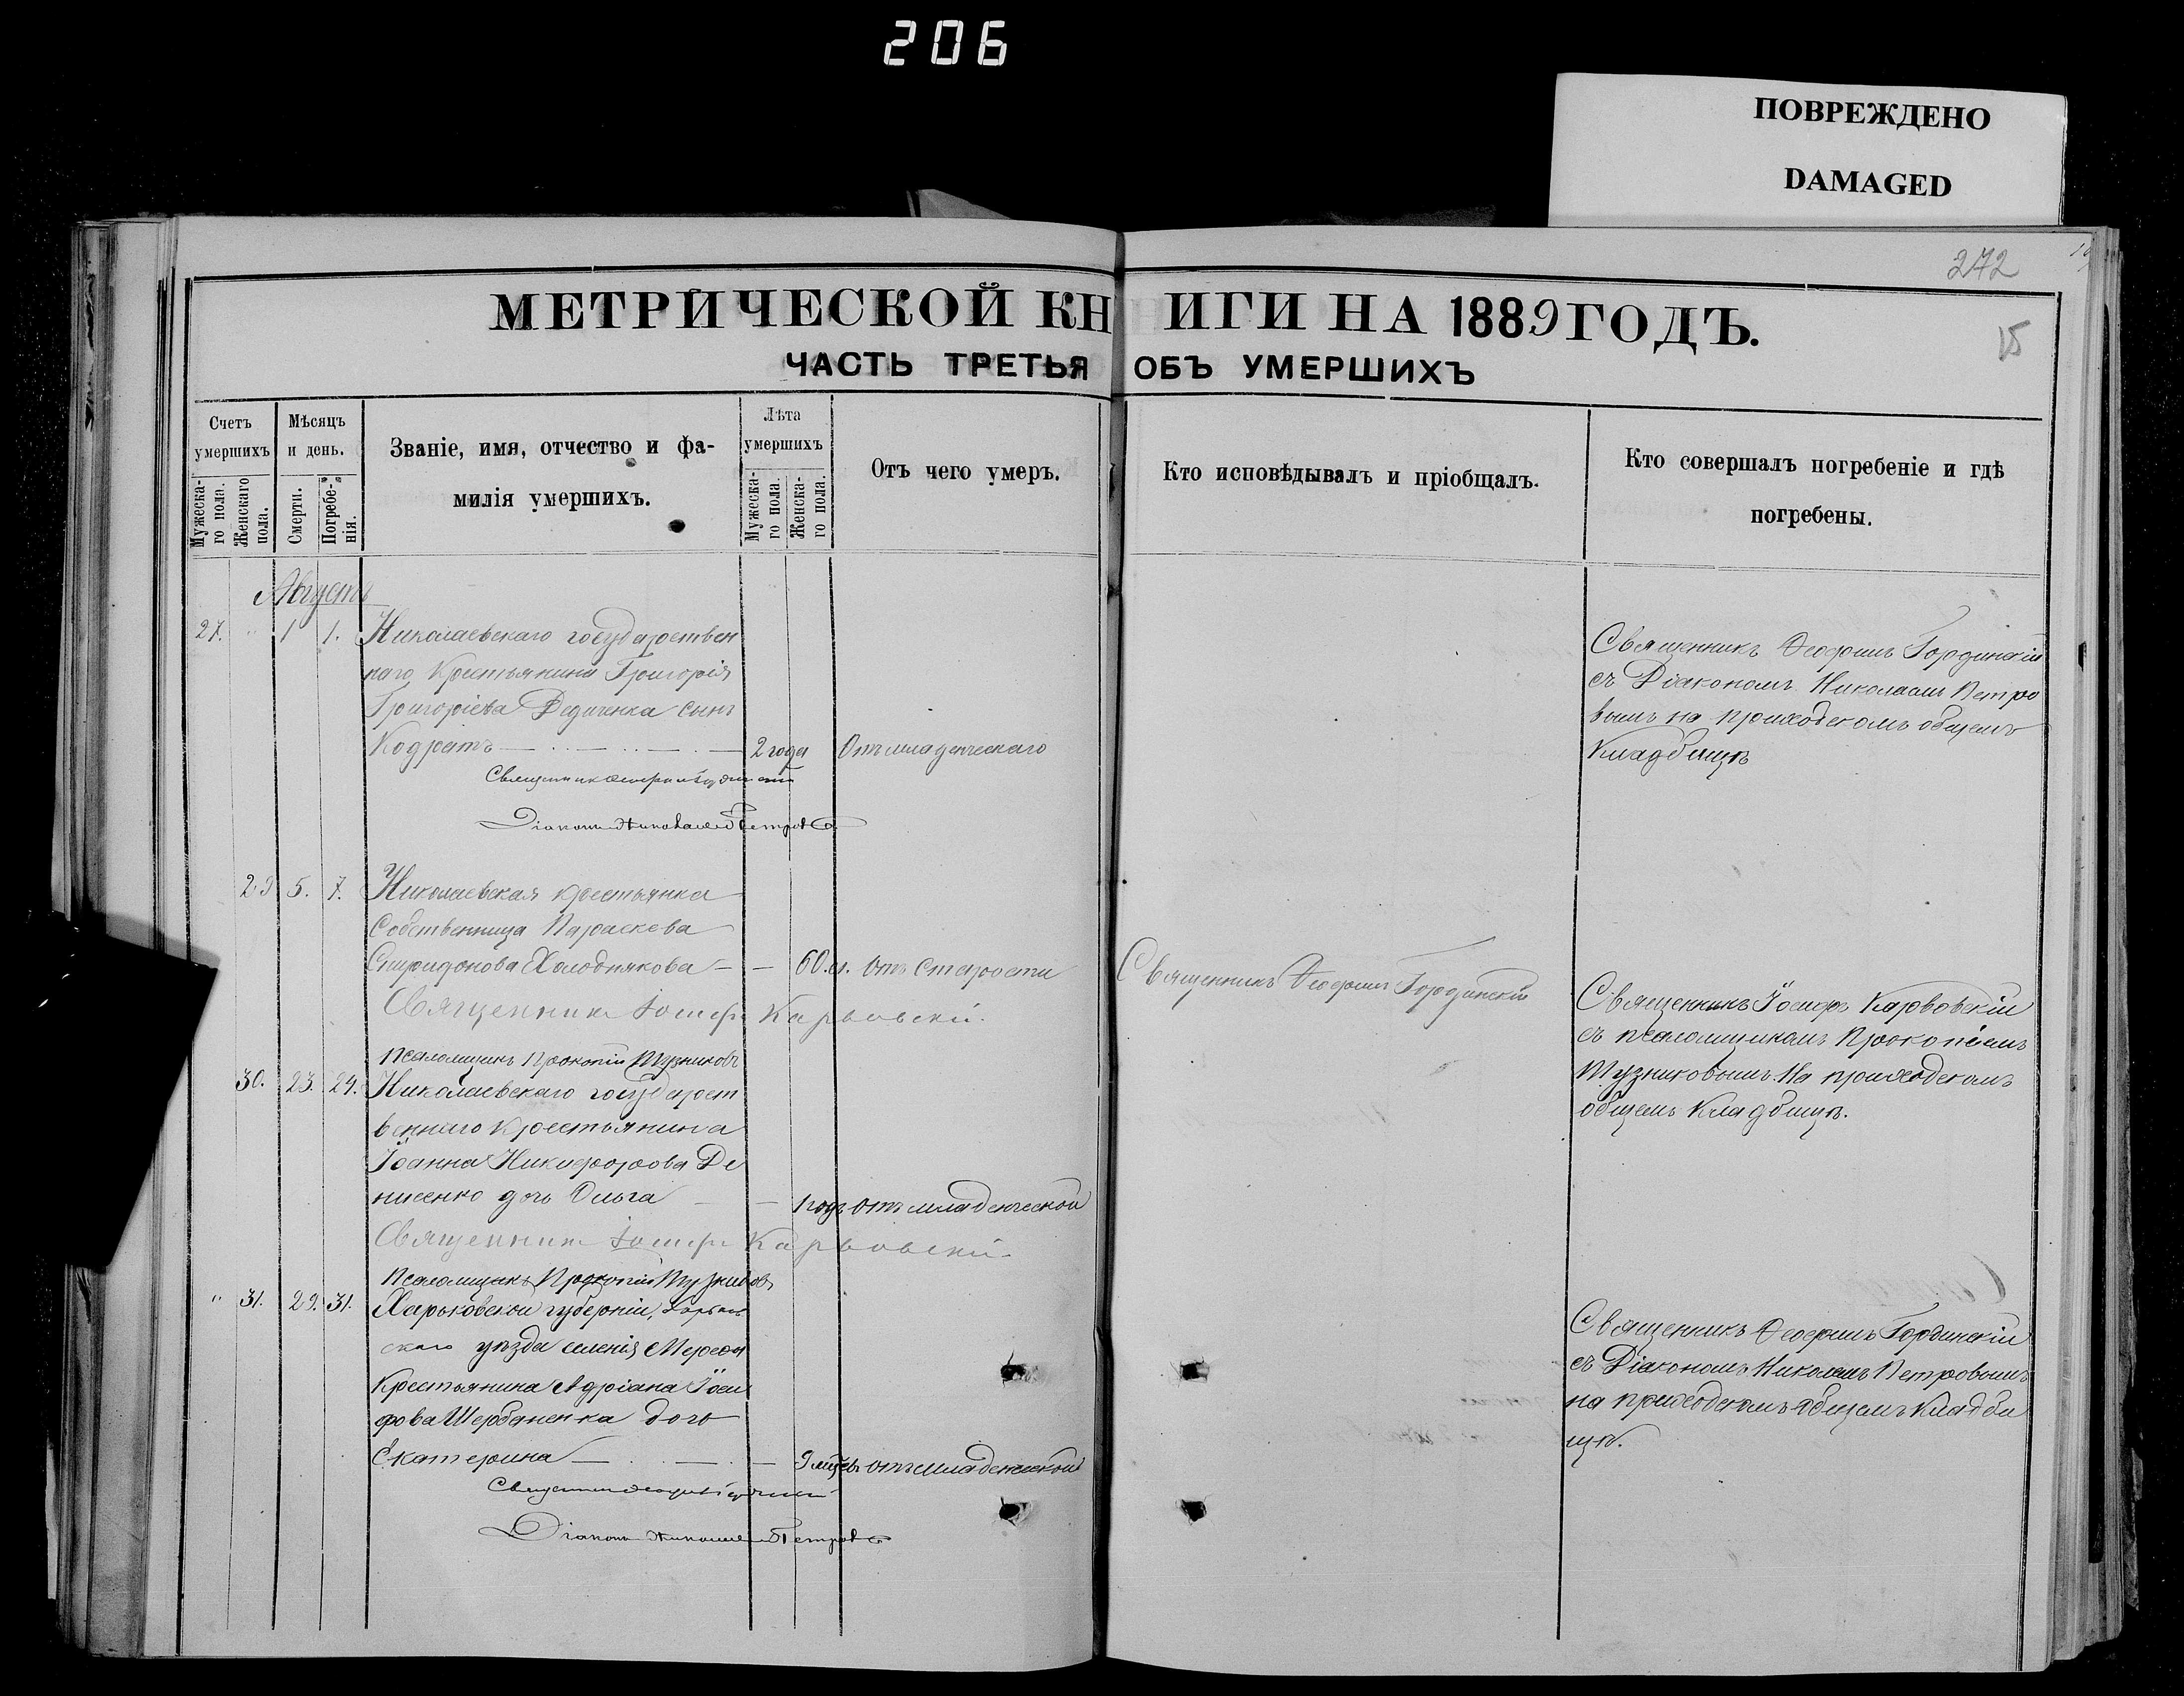 206
ПОВРЕЖДЕНО
DAMAGED
272
15
МЕТРИЧЕСКОЙ КНИГИ НА 1889 ГОДЪ.
ЧАСТЬ ТРЕТЬЯ ОБЪ УМЕРШИХЪ
Счетъ умершихъ
Мужеска-го пола.
Женскаго пола.
Мѣсяцъ и день.
Смерти.
Погребе-нія.
Званіе, имя, отчество и фа-
милія умершихъ.
Лѣта умершихъ
Мужеска-го пола.
Женска-го пола.
Отъ чего умеръ.
Кто исповѣдывалъ и пріобщалъ.
Кто совершалъ погребеніе и гдѣ
погребены.
Августъ
27. " 1 1. Николаевскаго государствен
наго Крестьянина Григорія
Григоріева Дедиченка сынъ
Кодратъ 2 года Отъ младенческаго
Священникъ
Діаконъ Николай Петровъ
Священникъ Феофилъ Гординскій
съ Діакономъ Николаемъ Петро
вымъ на приходскомъ общемъ
Кладбищѣ
29 5. 7. Николаевская крестьянка
Собственница Параскева
Спиридонова Холоднякова 60.л. Отъ Старости
Священникъ Феофилъ Гординскій
Священникъ Іосифъ Карвовскій.
Псаломщикъ Прокопій Тузниковъ
Священникъ Іосифъ Карвовскій
съ псаломщикомъ Прокопіемъ
Тузниковымъ. На приходскомъ
общемъ Кладбищѣ.
30. 23. 24. Николаевскаго государст
веннаго Крестьянина
Іоанна Никифорова Де
нисенко дочь Ольга 1 годъ отъ младенческой
Священникъ Іосифъ Карвовскій.
Псаломщикъ Прокопій Тузниковъ
" 31. 29. 31. Харьковской губерніи, Харьков
скаго уѣзда селенія Мерефы
Крестьянина Адріана Іоси
фова Шербаненка дочь
Екатерина 9 мцевъ отъ младенческой
Священникъ
Діаконъ Николай Петровъ
Священникъ Феофилъ Гординскій
съ Діакономъ Николаемъ Петровымъ
на приходскомъ общемъ Кладби
щѣ.